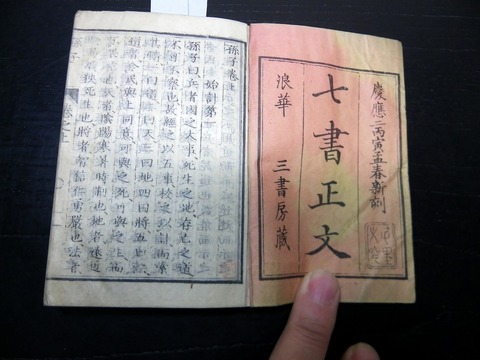 慶應二丙寅孟春新刻
七書正文
浪華 三書房藏
孫子卷
始計第一
孫子曰兵者國之大事死生之地存亡之道
不可不察也故經之以五事校之以計而
曰道二曰天三曰地四曰將五曰法
道者令民與上同意可與之死可與之生而
不畏危也天者陰陽寒暑時制也地者遠近
險易廣狹死生也將者智信仁勇嚴也法者
孫子 卷之上